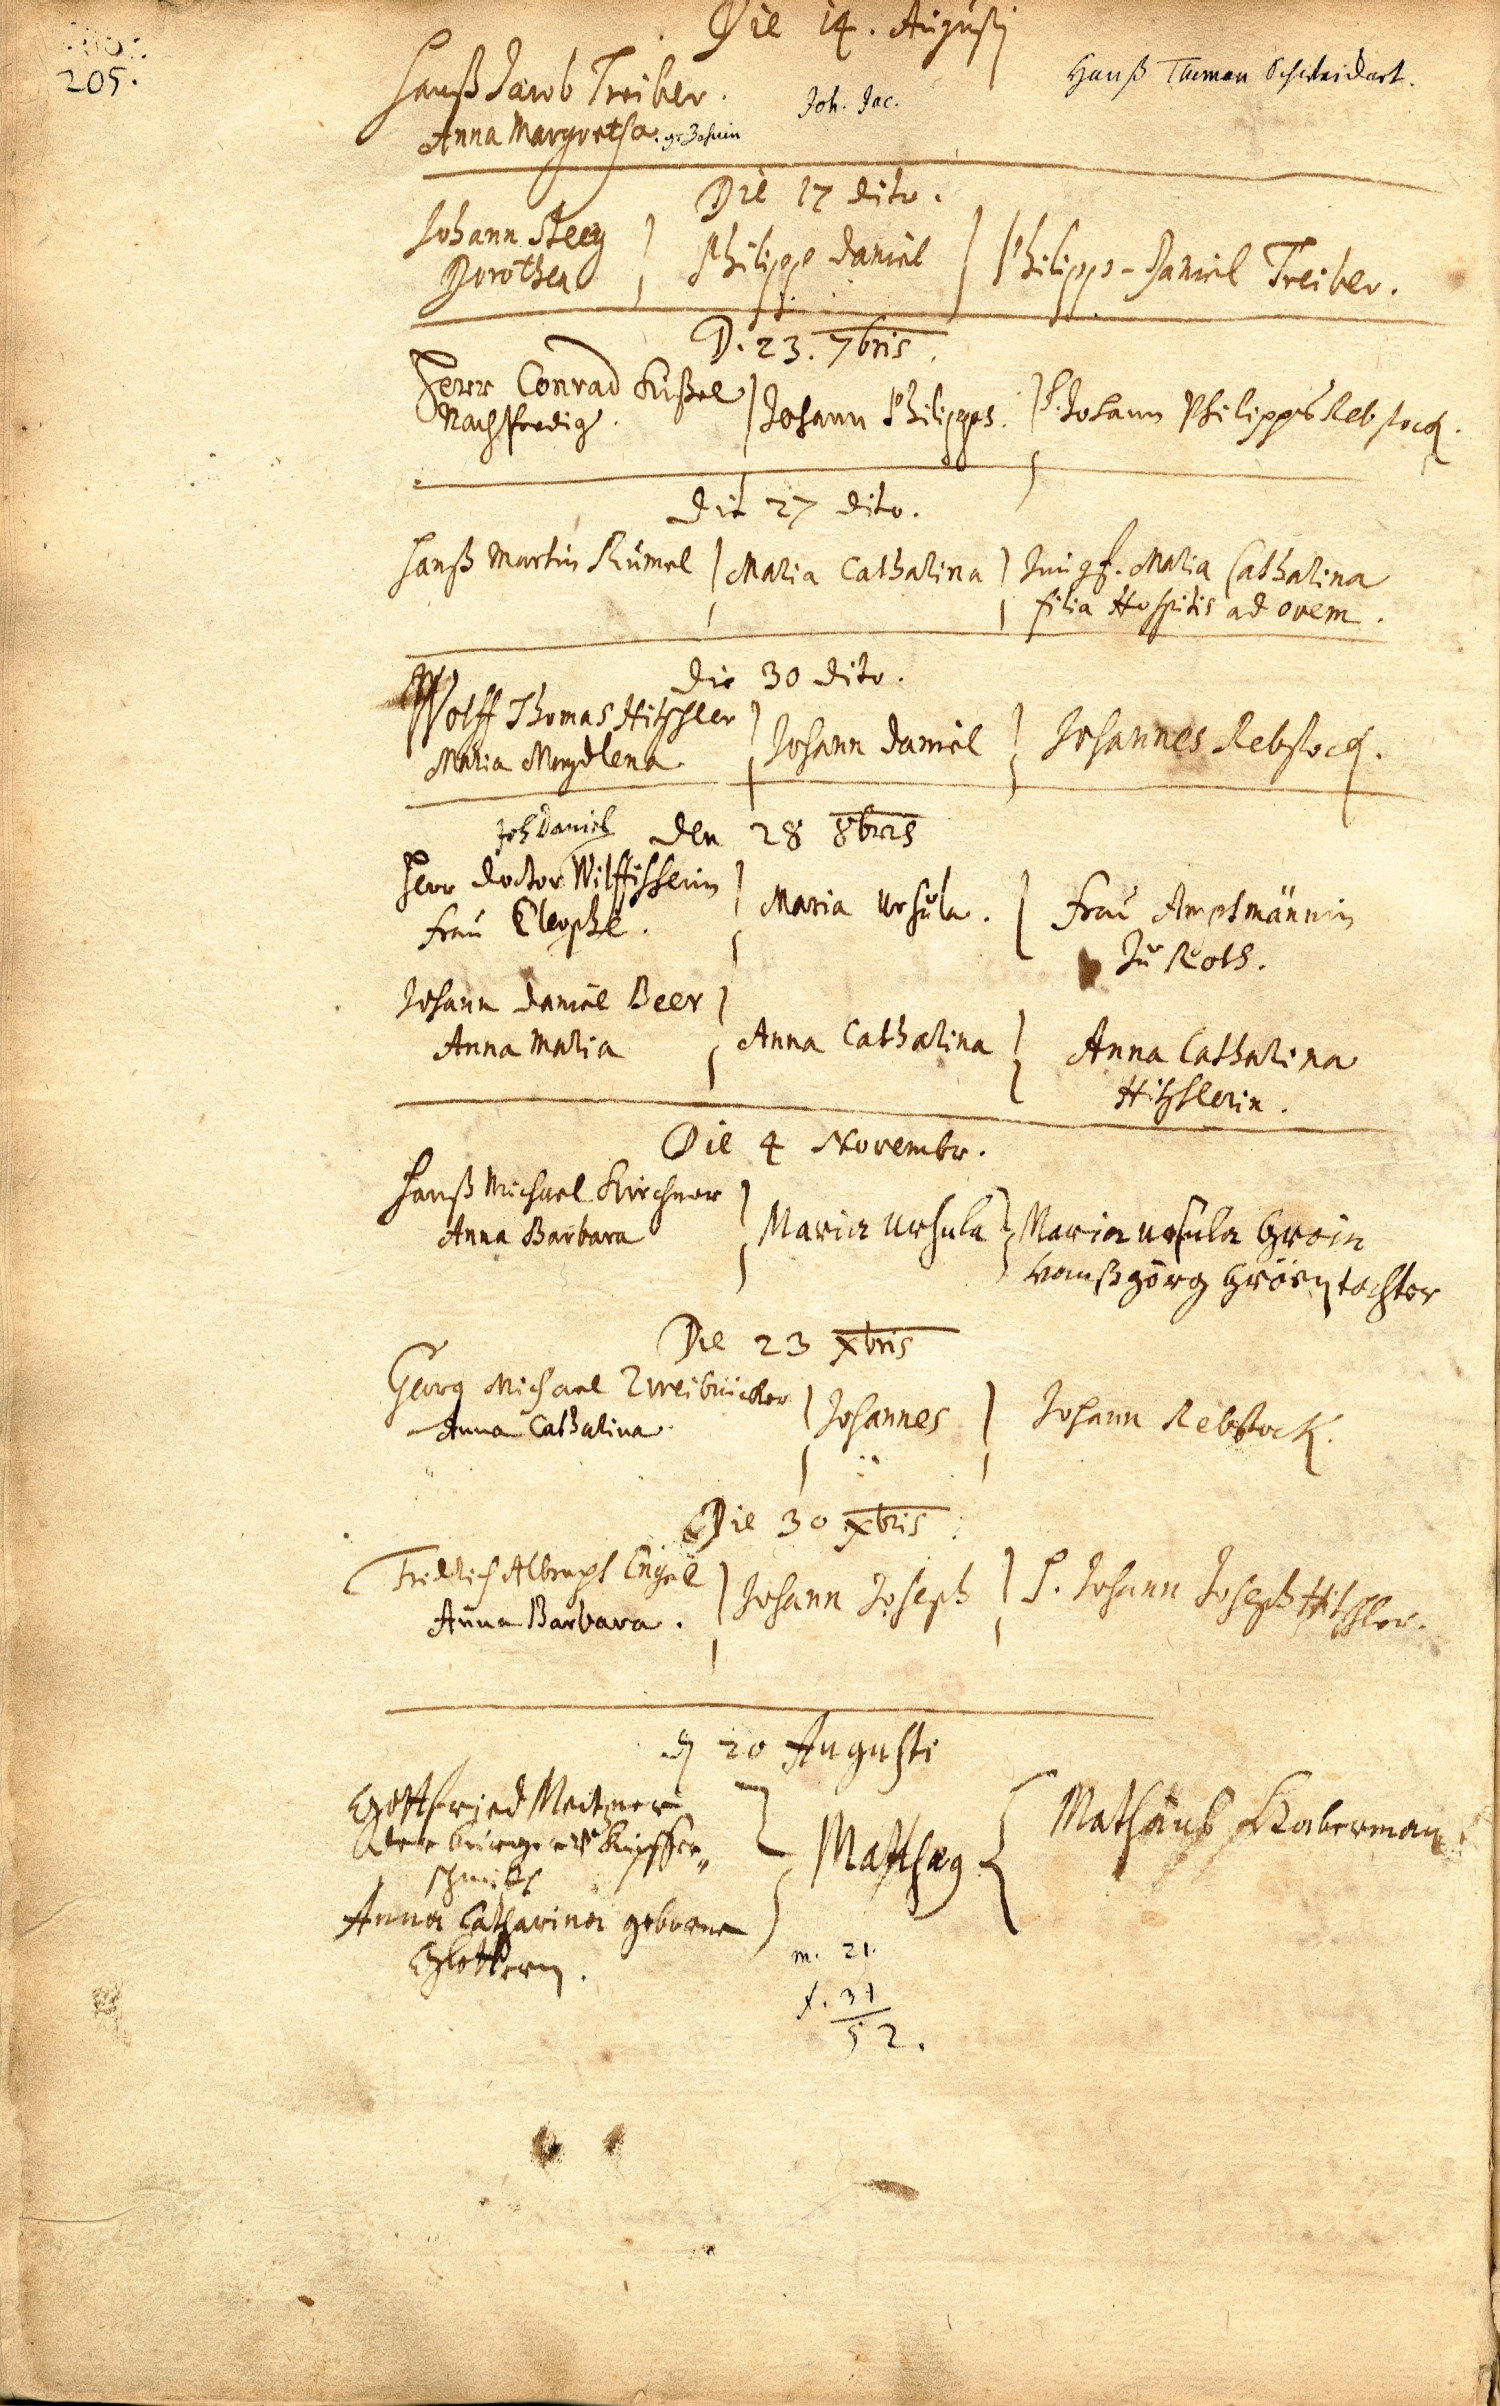 205.
Die 14. Augusti
Hanß Jacob Treiber.
Joh. Jac.
Hanß Thuman
Anna Margretha.
Die 17 dito.
Johann Steeg
Dorothea
Philipps Daniel
Philipps-Daniel Treiber.
D. 23. 7bris.
Herr Conrad Küßel
Johann Philipps.
H. Johann Philipps Rebstock.
die 27 dito.
Hanß Martin Kümel
Maria Catharina
Jungf. Maria Catharina
filia Hospitis ad ovem.
die 30 dito.
Wolff Thomas Hitschler
Maria Magdlena
Johann Daniel
Johannes Rebstock.
Joh Daniel
den 28 8bris
Herr doctor
frau Cleophe.
Maria Ursula.
frau Amptmännin
zu Roth.
Johann Daniel Beer
Anna Maria
Anna Catharina
Anna Catharina
Hitschlerin.
Die 4 Novembr.
Hanß Michael Kirchner
Anna Barbara
Maria Ursula
Maria Ursula Groin
Hanß görg tochter
Die 23 Xbris
Georg Michael Zweibrücker
Anna Catharina.
Johannes
Johann Rebstock.
Die 30 Xbris.
Fridrich Albrecht Engel
Anna Barbara.
Johann Joseph
H. Johann Joseph Hitschler.
d 20 Augusti
Gottfried
burger Kupffer„
schmidt
Anna Catharina geborne
Matheus
Mathäus Haberman
m. 21.
f. 31
52.